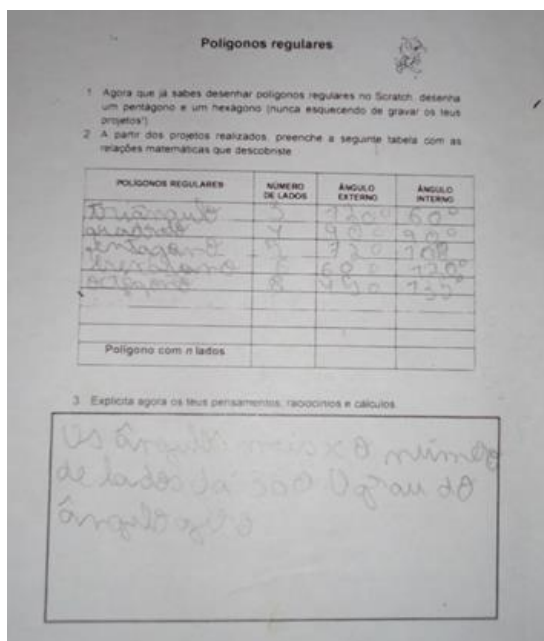 Polígonos regulares
1 Agora que já sabes desenhar polígonos regulares no Scratch, desenha
um pentágono e um hexágono (nunca esquecendo de gravar os teus
projetos!)
2 A partir dos projetos realizados, preenche a seguinte tabela com as
relações matemáticas que descobriste
POLÍGONOS REGULARES NÚMERO DE LADOS ÂNGULO EXTERNO ÂNGULO INTERNO
triângulo 3 120º 60º
quadrado 4 90º 90º
pentágono 5 72º 108
6 60º 120º
octógono 8 45º 135º
Polígono com n lados
3 Explicita agora os teus pensamentos, raciocínios e cálculos
Os ângulos x o número
de lados dá 360 O grau do
ângulo